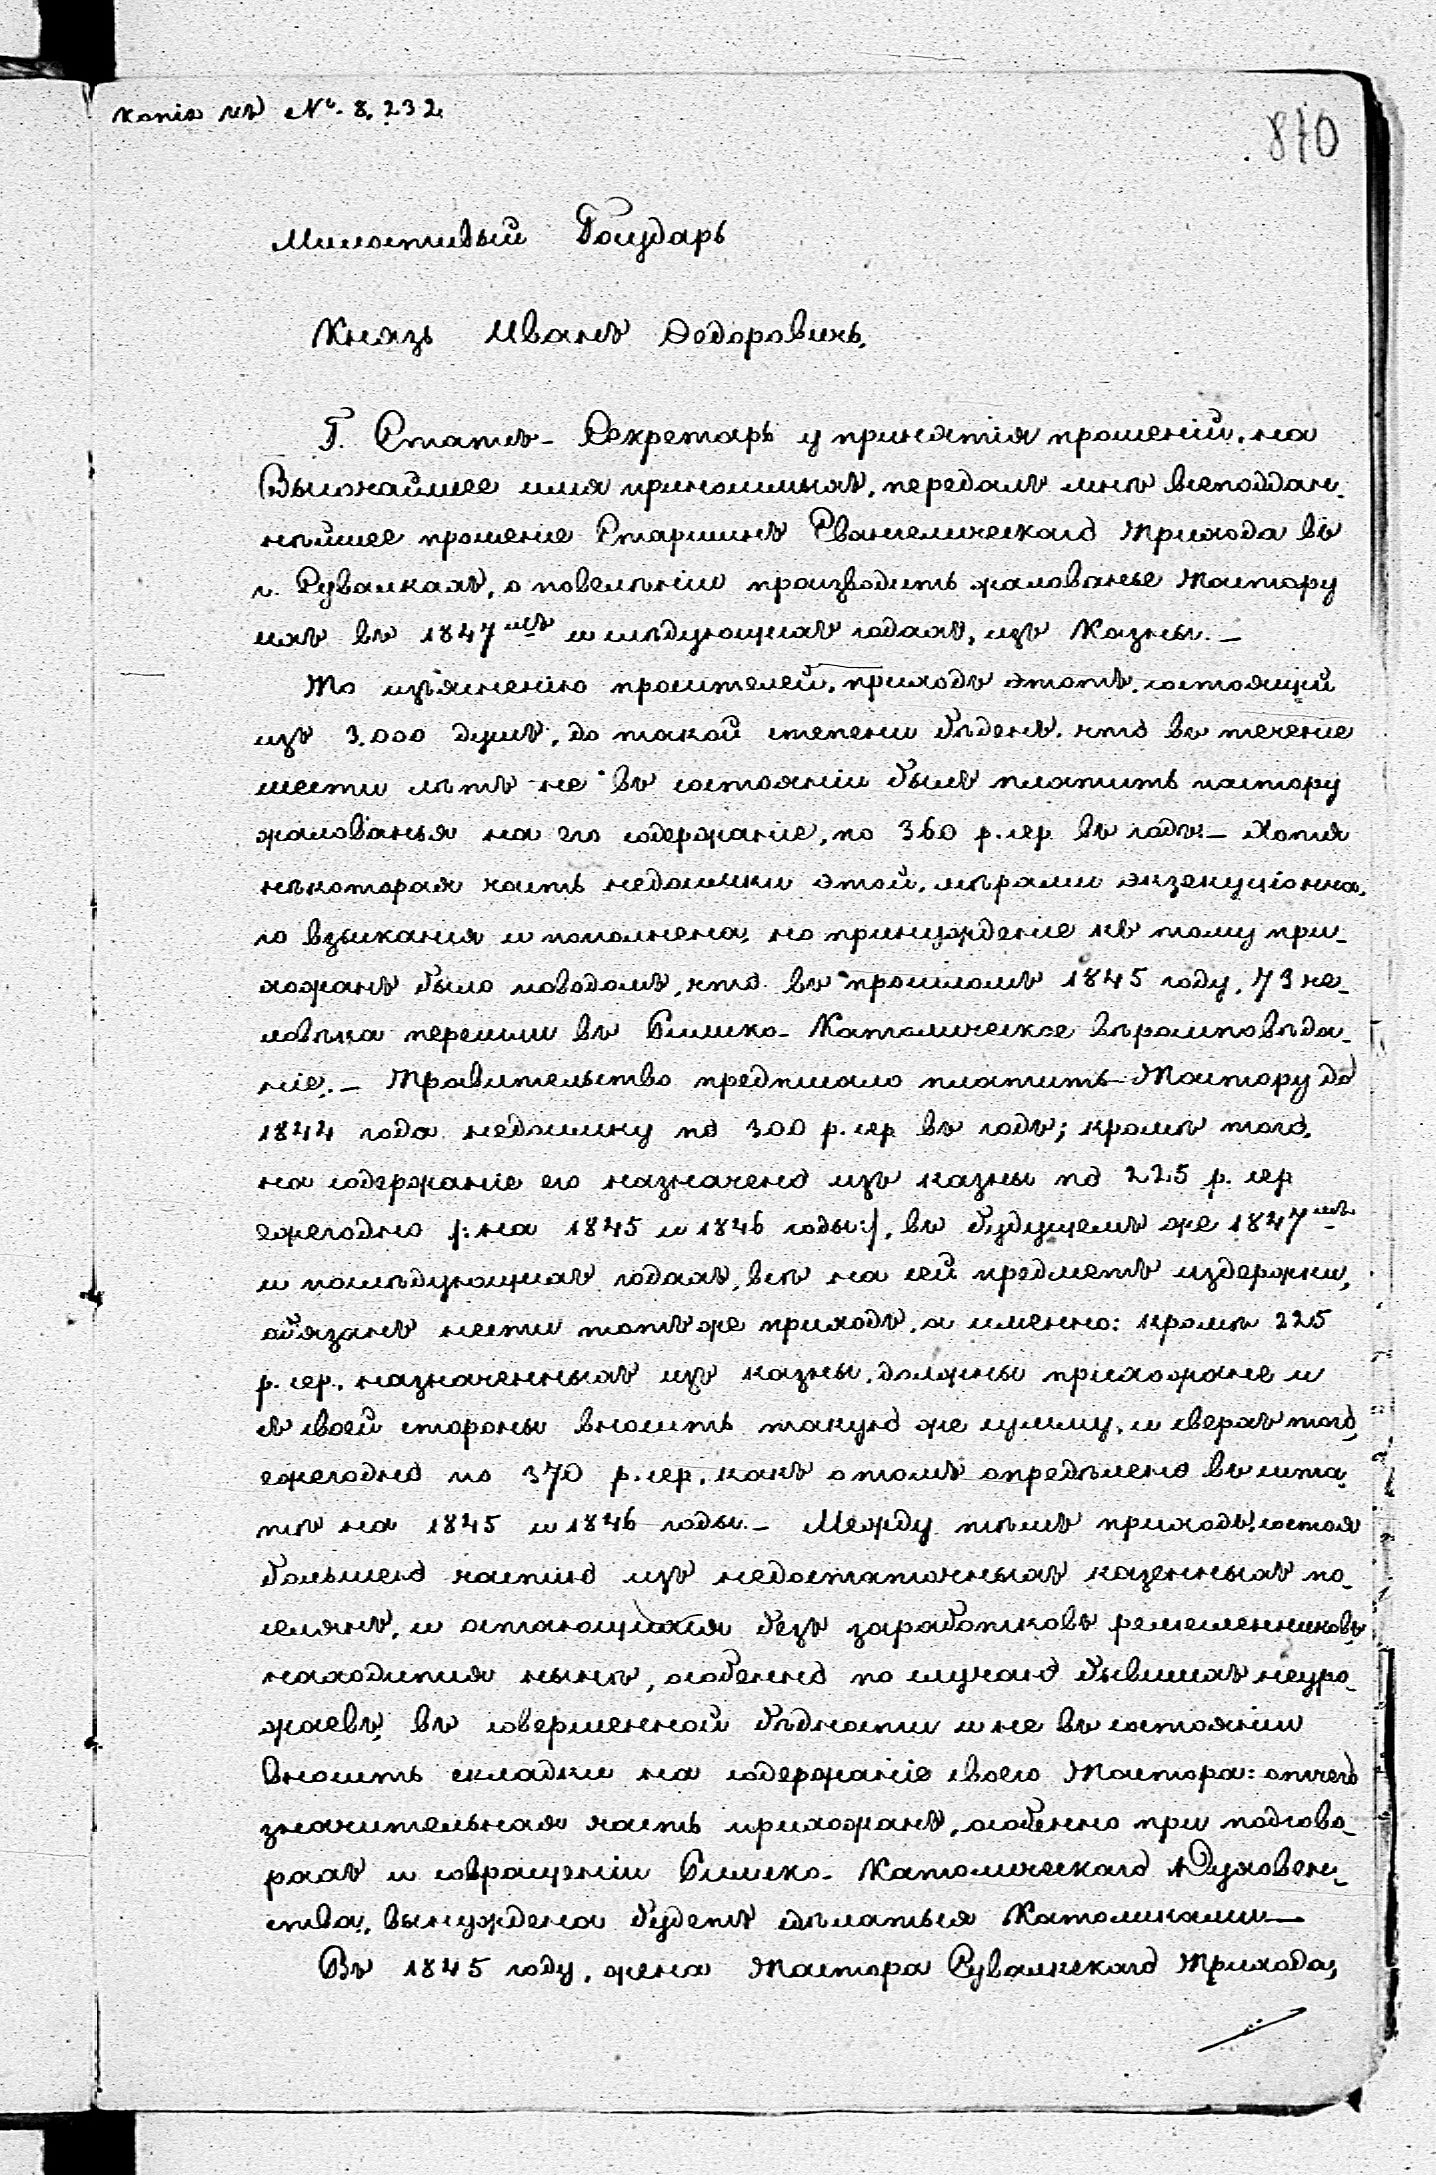 копія къ №. 8,232.
870
Милостивый Государь
Князь Иванъ Ѳедоровичь.
Г. Статъ-Секретарь у принятія прошеній, на
Высочайшее имя приносимыхъ, передалъ мнѣ всеподдан-
нѣйшее прошеніе Старшинъ Евангелическаго Прихода въ
г. Сувалкахъ, о повелѣніи производить жалованье Пастору
ихъ въ 1847мъ и слѣдующихъ годахъ, изъ Казны. —
По изъясненію просителей, приходъ этотъ, состоящій
изъ 3.000 душъ, до такой степени бѣденъ, что въ теченіе
шести лѣтъ не въ состояніи былъ платить пастору
жалованья на его содержаніе, по 360 р. сер. въ годъ: — Хотя
нѣкоторая часть недоимки этой, мѣрами экзекуціонна-
го взысканія и пополнена, но принужденіе къ тому при-
хожанъ было поводомъ, что въ прошломъ 1845 году, 73 че-
ловѣка перешли въ Римско-Католическое вѣроисповѣда-
ніе. — Правительство предписало платить Пастору до
1844 года недоимку по 300 р. сер. въ годъ; кромѣ того,
на содержаніе его назначено изъ казны по 225 р. сер
ежегодно /: на 1845 и 1846 годы :/, въ будущемъ же 1847мъ
и послѣдующихъ годахъ, всѣ на сей предметъ издержки,
обязанъ нести тотъ же приходъ, а именно: кромѣ 225
р. сер. назначенныхъ изъ казны, должны прихожане и
съ своей стороны вносить такую же сумму, и сверхъ того,
ежегодно по 370 р. сер. какъ о томъ опредѣлено въ шта-
тѣ на 1845 и 1846 годы. — Между тѣмъ приходъ, состоя
большею частію изъ недостаточныхъ казенныхъ по-
селянъ, и остающихся безъ заработковъ ремесленниковъ,
находится нынѣ, особенно по случаю бывшихъ неуро-
жаевъ, въ совершенной бѣдности и не въ состояніи
вносить складки на содержаніе своего Пастора: отчего
значительная часть прихожанъ, особенно при подгово-
рахъ и совращеніи Римско-Католическаго Духовен-
ства, вынуждена будетъ сдѣлаться Католиками —
Въ 1845 году, жена Пастора Сувалкскаго Прихода,